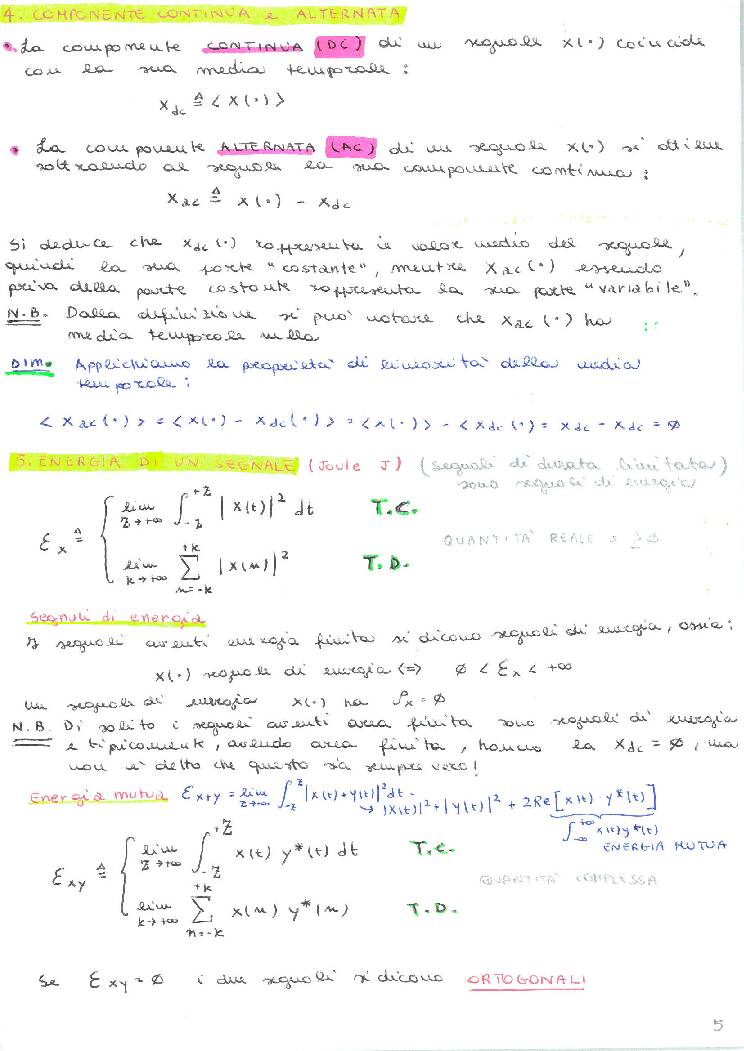 4. COMPONENTE CONTINUA e ALTERNATA
• La componente CONTINUA (DC) di un segnale x(·) coincide
con la sua media temporale:
x_dc ≜ <x(·)>
• La componente ALTERNATA (AC) di un segnale x(·) si ottiene
sottraendo al segnale la sua componente continua:
x_ac ≜ x(·) - x_dc
Si deduce che x_dc(·) rappresenta il valor medio del segnale,
quindi la sua parte "costante", mentre x_ac(·) essendo
priva della parte costante rappresenta la sua parte "variabile".
N.B. Dalla definizione si può notare che x_ac(·) ha
media temporale nulla
DIM. Applichiamo la proprietà di linearità della media
temporale:
<x_ac(·)> = <x(·) - x_dc(·)> = <x(·)> - <x_dc(·)> = x_dc - x_dc = ∅
5. ENERGIA DI UN SEGNALE (Joule J) (segnali di durata limitata)
sono segnali di energia
lim Z→+∞ ∫_{-Z}^{+Z} |x(t)|² dt T.C.
Ɛ_x ≜ QUANTITÀ REALE
lim k→+∞ Σ_{n=-k}^{+k} |x(n)|² T.D.
Segnali di energia
I segnali aventi energia finita si dicono segnali di energia, ossia:
x(·) segnale di energia <=> ∅ < Ɛ_x < +∞
Un segnale di energia x(·) ha P_x = ∅
N.B. Di solito i segnali aventi area finita sono segnali di energia
e tipicamente, avendo area finita, hanno la x_dc = ∅, ma
non è detto che questo sia sempre vero!
Energia mutua Ɛ_x+y = lim Z→+∞ ∫_{-Z}^{Z} |x(t)+y(t)|² dt
→ |x(t)|² + |y(t)|² + 2Re[x(t)·y*(t)]
∫_{-∞}^{+∞} x(t)y*(t)
ENERGIA MUTUA
lim Z→+∞ ∫_{-Z}^{+Z} x(t) y*(t) dt T.C.
Ɛ_xy ≜ QUANTITÀ COMPLESSA
lim k→+∞ Σ_{n=-k}^{+k} x(n) y*(n) T.D.
Se Ɛ_xy = ∅ i due segnali si dicono ORTOGONALI
5